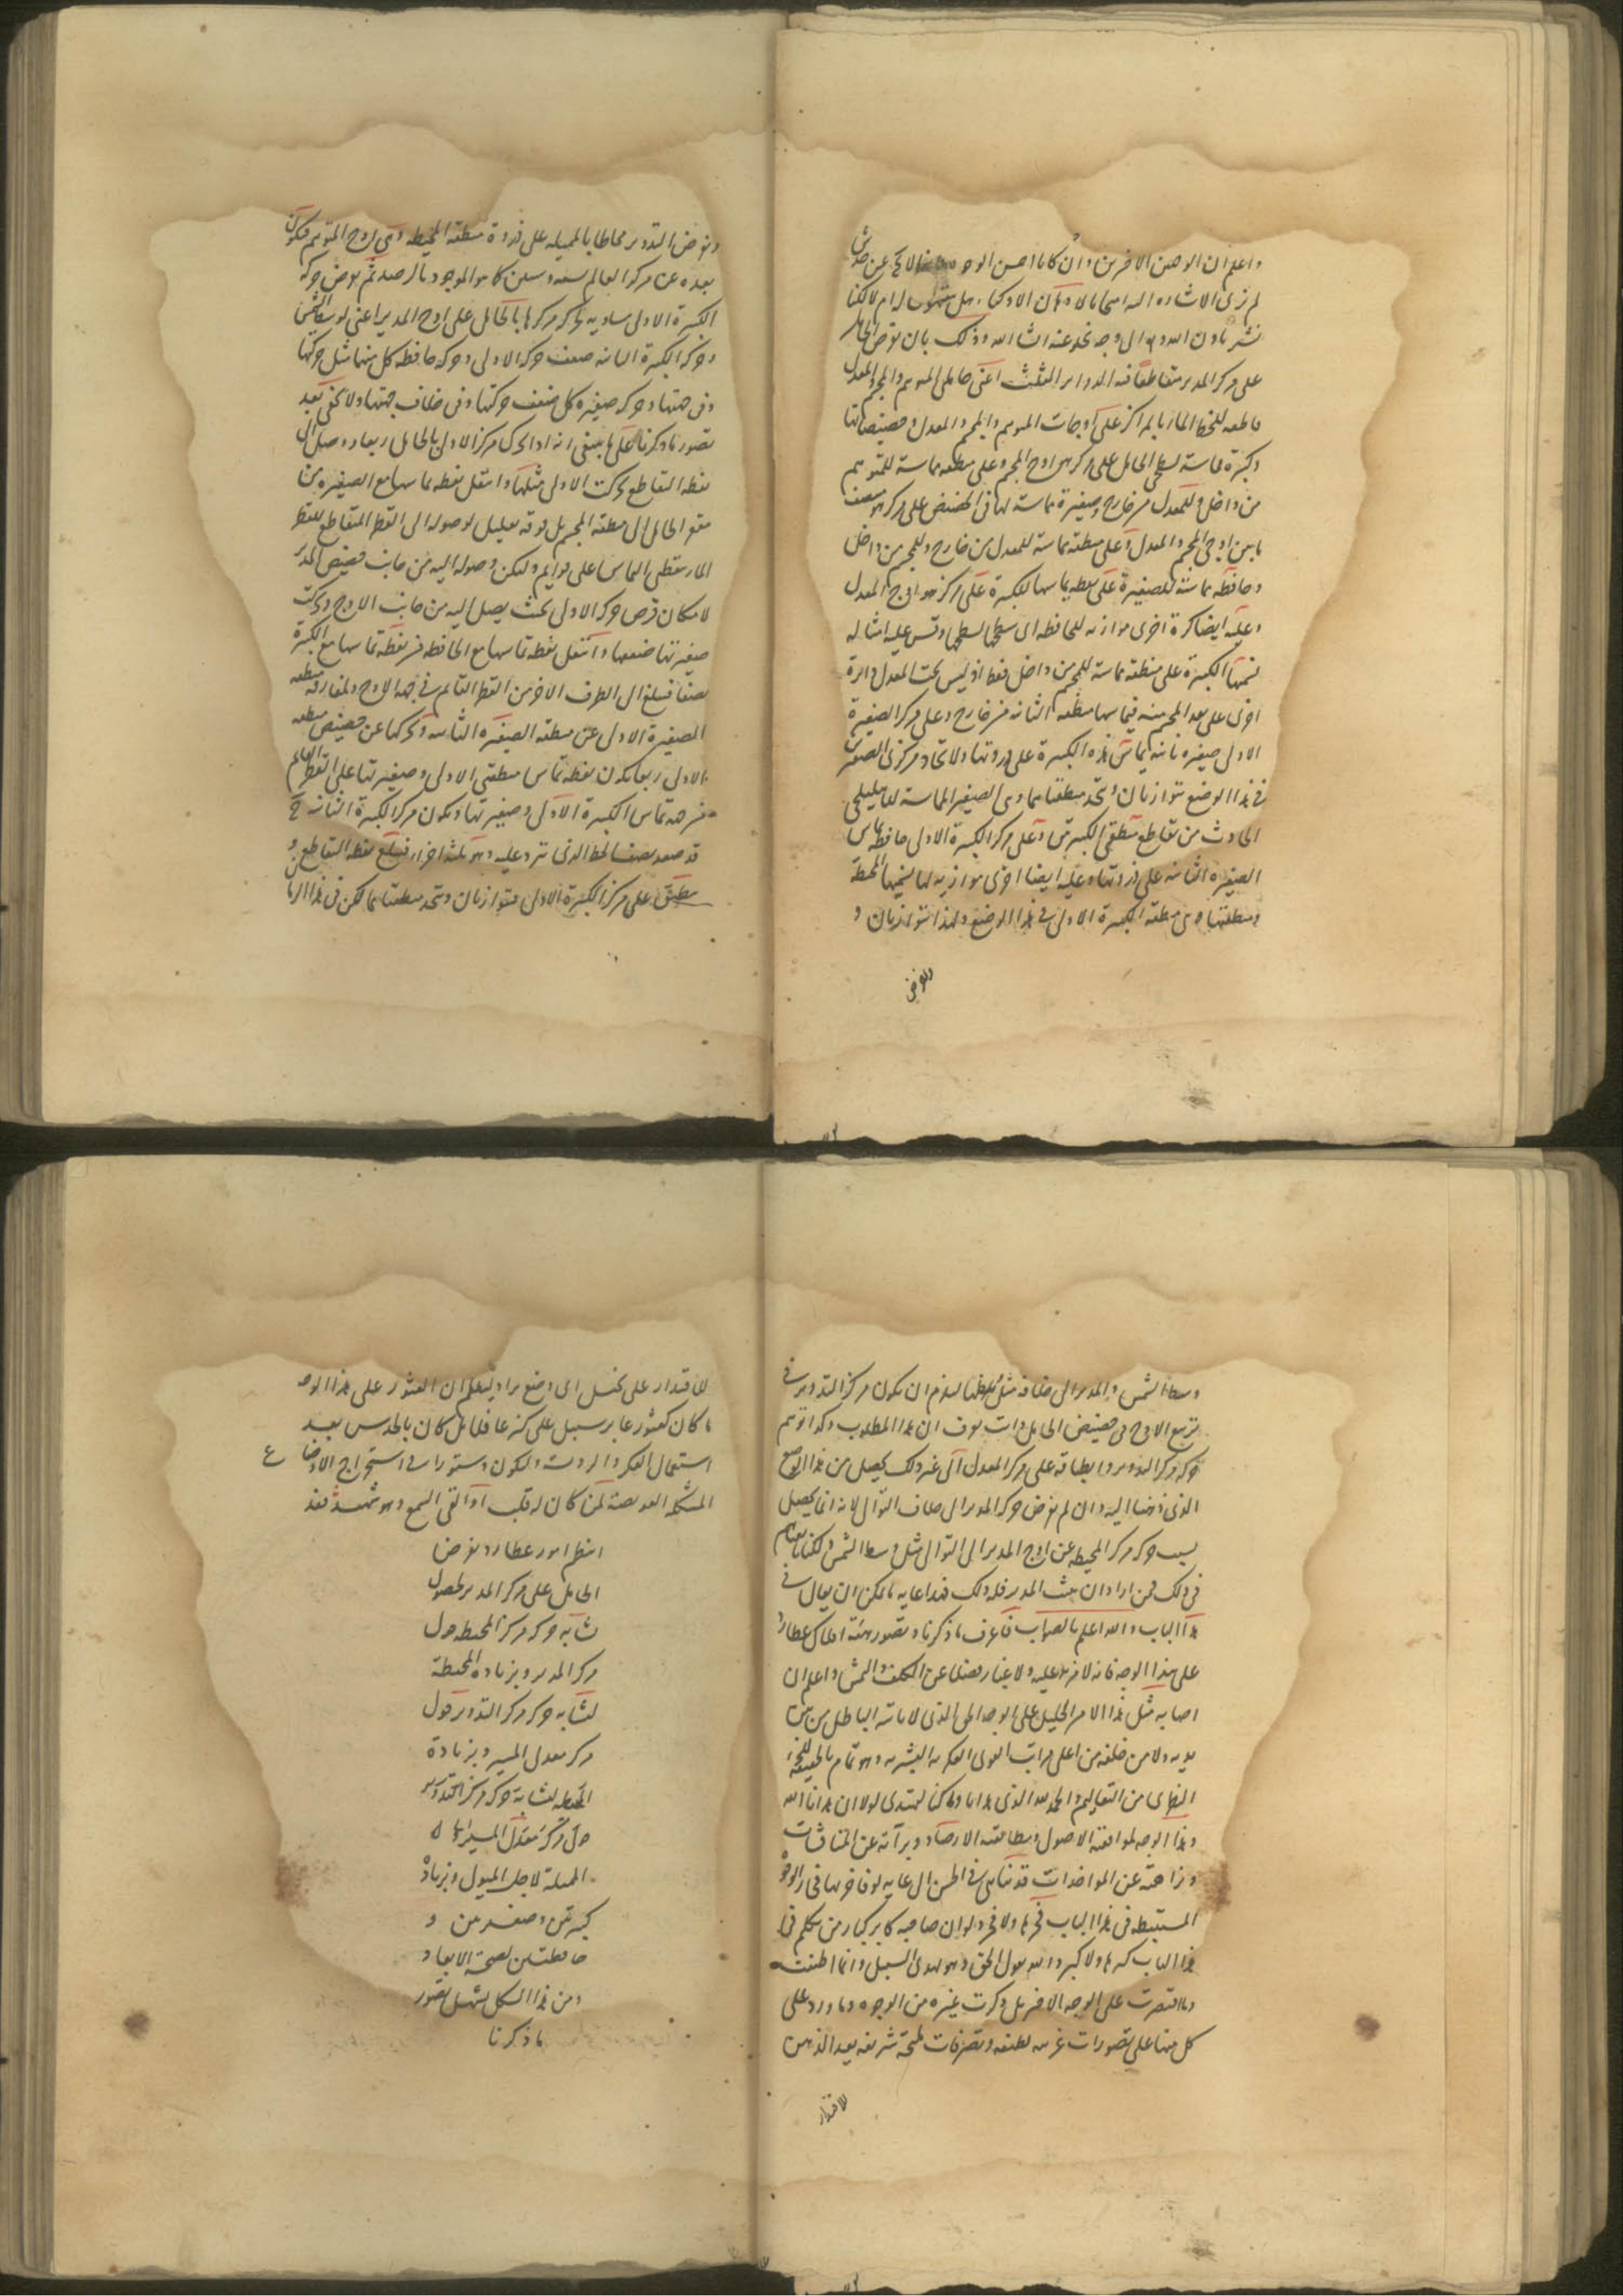 واعلم ان الوجهين الاخيرين وان كانا احسن الوجوه لا يخلو عن خدش
لم نزد الاشارة اليه امتحانا للاذكياء هل يتنبهون له ام لا لكنا
نشير باذن الله الى وجه نخلو عنه ان شاء الله وذلك بان نفرض الحامل
على مركز المدير متقاطعا فيه الدوائر الثلث اعنى حاملى المتوهم والمجسم والمعدل
قاطعه للخط المار بالمراكز على اوجات المتوهم والمجسم والمعدل وحضيضاتها
وكبيرة مماسة لسطحى الحامل على مركز هو اوج المجسم وعلى منطقه مماسة للمتوهم
من داخل وللمعدل من خارج وصغيرة مماسة لها فى الحضيض على مركز هو منتصف
ما بين اوجى المجسم والمعدل وعلى منطقه مماسة للمعدل من خارج وللمجسم من داخل
وحافظه مماسة للصغيرة على نقطه تماسها للكبيرة على مركز هو اوج المعدل
وعليه ايضا كرة اخرى موازيه للحافظه اى سطحها لسطحها وقس عليه امثاله
نسميها الكبيرة على منطقه مماسة للمجسم من داخل فقط اذ ليس تحت المعدل دائرة
اخرى على بعد المجسم منه فيماسها منطقه الثانيه من خارج وعلى مركز الصغيرة
الاولى صغيرة ثانيه يماس هذه الكبيرة على ذروتها ولاتحاد مركزى الصغيرتين
فى هذا الوضع تتوازيان وتتحد منطقتاهما وهى الصغير المماسة للهليلجى
الحادث من تقاطع منطقتى الكبيرتين وعلى مركز الكبيرة الاولى حافظه تماس
الصغيرة الثانيه على ذروتها وعليه ايضا اخرى موازيه لها نسميها المحيطة
ومنطقتها هى منطقه الكبيرة الاولى فى هذا الوضع ولهذا تتوازيان و
ونفرض
ونفرض التدوير محاطا بالمميله على ذروة منطقه المحيطه وهى اوج المتوهم فيكون
بعده عن مركز العالم تسعه وستين كما هو الموجود بالرصد ثم نفرض حركه
الكبيرة الاولى مساويه لحركه مركزها بالحامل على اوج المدير اعنى لوسط الشمس
وحركه الكبيرة الثانيه ضعف حركه الاولى وحركه حافظه كل منهما مثل حركتها
وفى جهتها وحركه صغيره كل ضعف حركتها وفى خلاف جهتها ولا يخفى بعد
تصور ما ذكرنا على ما ينبغى انه اذا تحرك مركز الاولى بالحامل ربعا ووصل الى
نقطه التقاطع تحركت الاولى مثلها وانتقل نقطه تماسها مع الصغيره من
مقعر الحامل الى منطقه المجسم بل فوقه بقليل لوصوله الى القطر المتقاطع للقطر
المار بنقطتى التماس على قوائم وليكن وصوله اليه من جانب حضيض المدير
لامكان فرض حركه الاولى بحيث يصل اليه من جانب الاوج وتحركت
صغيرتها ضعفها وانتقل نقطه تماسها مع الحافظه من نقطه تماسها مع الكبيرة
نصفا فبلغ الى الطرف الاخر من القطر القائم فى جهه الاوج ولمفارقه منطقه
الصغيرة الاولى عن منطقه الصغيره الثانيه وتحركها عن حضيض منطقه
الاولى ربعا يكون نقطه تماس منطقتى الاولى وصغيرتها على القطر القائم
من جهه تماس الكبيرة الاولى وصغيرتها ويكون مركز الكبيرة الثانيه ح
قد صعد نصف الخط الذى تردد عليه وهو ثلثة اجزاء فبلغ نقطه التقاطع و
منطبق على مركز الكبيرة الاولى فتتوازيان وتتحد منطقتاهما لكن فى هذا الزمان
وسط الشمس والمدير الى خلافه مثل وسطها يلزم ان يكون مركز التدوير فى
تربيع الاوج فى حضيض الحامل وانت تعرف ان هذا المطلوب وكذا توهم
حركه مركز التدوير وانطباقه على مركز المعدل الى غير ذلك يحصل من هذا الوضع
الذى ذهبنا اليه وان لم نفرض حركه المدير الى خلاف التوالى لانه انما يحصل
بسبب حركه مركز المحيطه عن اوج المدير الى التوالى مثل وسط الشمس ولكنا تابعناهم
فى ذلك فمن اراد ان يثبت المدير فله ذلك فهذا غايه ما يمكن ان يقال فى
هذا الباب والله اعلم بالصواب فاعرف ما ذكرنا وتصور هيئة افلاك عطارد
على هذا الوجه فانه لا مزيد عليه ولا غبار فضلا عن الكلف والنمش واعلم ان
اصابه مثل هذا الامر الجليل على الوجه الحق الذى لا ياتيه الباطل من بين
يديه ولا من خلفه من اعلى مراتب القوى الفكريه البشريه وهو تمام بالحقيقة للجزء
النظرى من التعاليم والحمد لله الذى هدانا وما كنا لنهتدى لولا ان هدانا الله
وهذا الوجه لموافقته الاصول ومطابقته الارصاد وبرآته عن المناقشات
ونزاهته عن المواخذات قد تناهى فى الحسن الى غايه لو فاخر بها فى الوجوه
المستنبطه فى هذا الباب فخر بها ولا فخر ولو ان صاحبه كابر كبار من تكلم فى
هذا الباب كبرها ولا كبر والله يقول الحق وهو يهدى السبيل وانما اطنبت
وما اقتصرت على الوجه الاخير بل ذكرت غيره من الوجوه وما ورد على
كل منها على تصورات غريبه لطيفه وتصرفات مليحة شريفه يعد الذهن
لاقتدار
للاقتدار على تخيل اى وضع يراد وليعلم ان العثور على هذا الوجه
ما كان كعثور عابر سبيل على كنز غافلا بل كان بالحدس بعد
استعمال الفكر والرويت وليكون دستورا فى استخراج الاوضاع
المشكله العويصة لمن كان له قلب او القى السمع وهو شهيد فقد
انتظم امور عطارد بفرض
الحامل على مركز المدير لحصول
تشابه حركه مركز المحيطه حول
مركز المدير وبزياده المحيطة
لتشابه حركه مركز التدوير حول
مركز معدل المسير وبزيادة
المحيطه لتشابه حركه مركز التدوير
حول مركز معدل المسير
المميلة لاجل الميول وبزيادة
كبيرتين وصغيرتين و
حافظتين لصحة الابعاد
ومن هذا الشكل يسهل تصور
ما ذكرنا